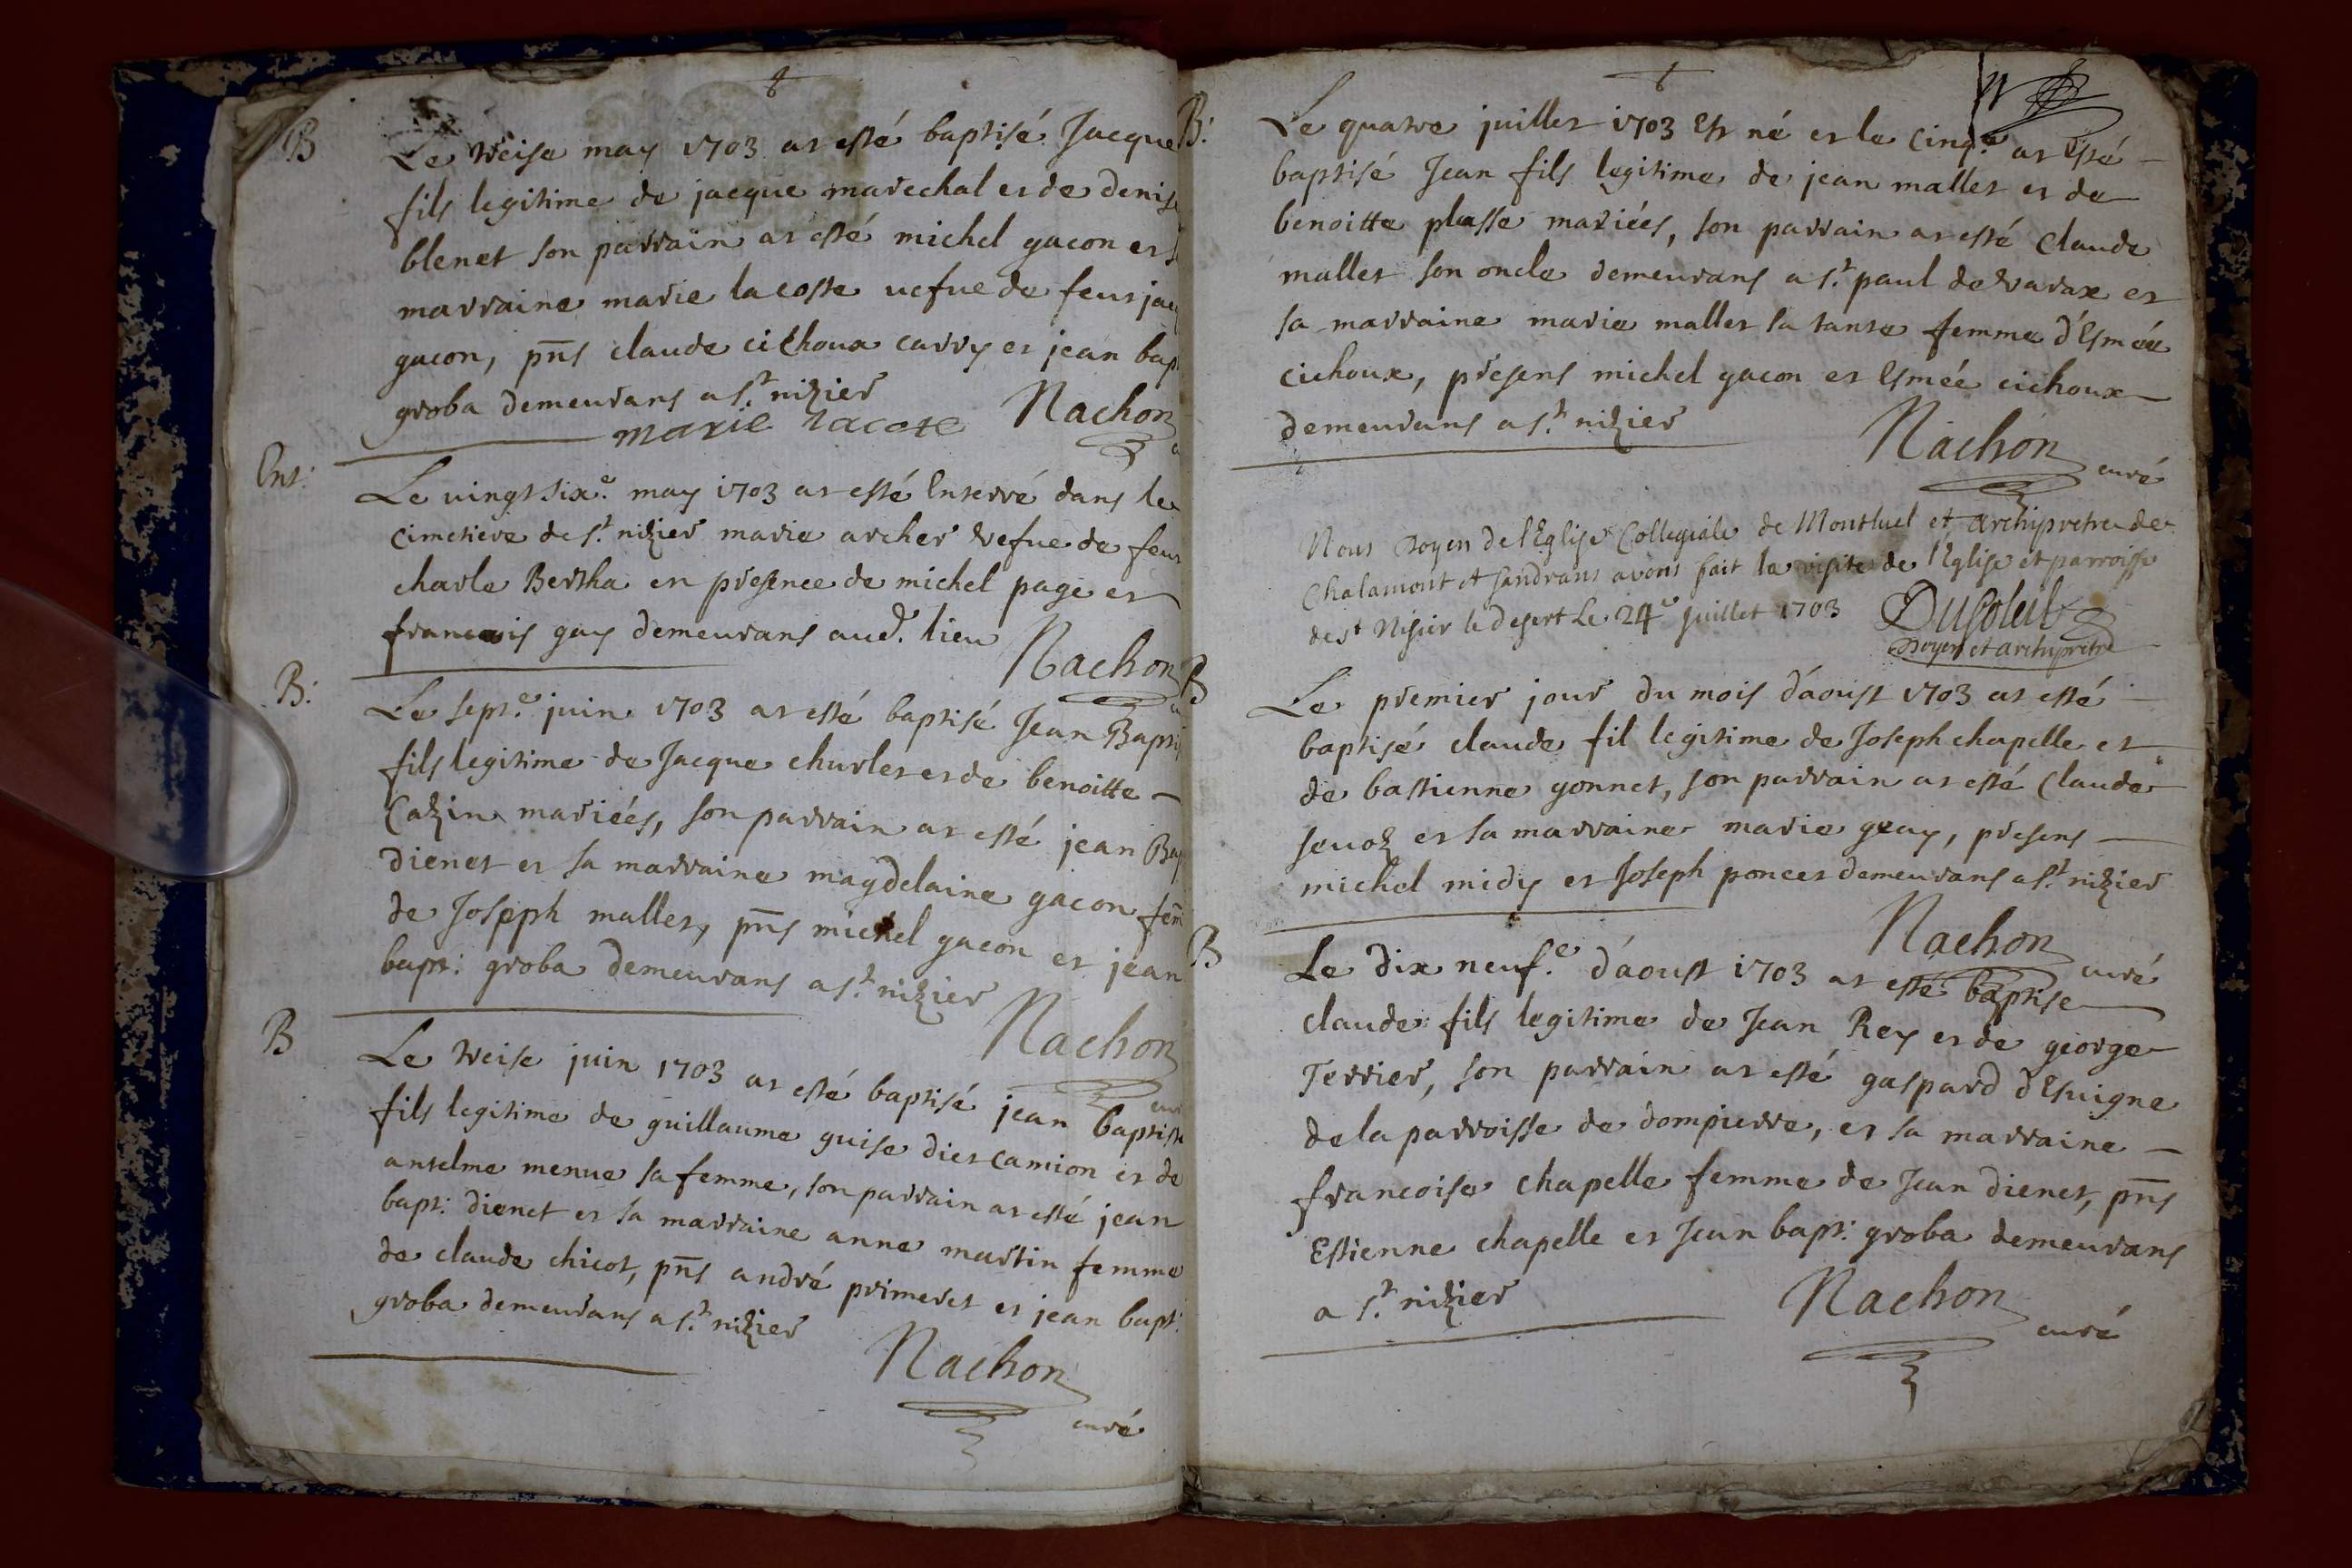 B
Le treise may 1703 at esté baptisé Jacque
fils legitime de jacque marechal et de denise
blenet son parrain at esté michel gacon et
marraine marie lacoste uefue de feut
gacon, pñs claude cichoux carry et jean bapt
groba demeurans a st. nizier
marie lacote Nachon
Ent:
Le uingt sixe. may 1703 at esté Enterré dans le
cimetiere de st. nizier marie archer vefue de feut
charle Bertha en presence de michel page et
francois gay demeurans aud. lieu
Nachon
B:
Le septe. juin 1703 at esté baptisé Jean Bapti
fils legitime de Jacque churlet et de benoitte
Cazin mariées, son parrain at esté jean Bap
dienet et sa marraine magdelaine gacon fem
de Joseph mallet, pñs michel gacon et jean
bapt: groba demeurans a st. nizier
Nachon
B
Le treise juin 1703 at esté baptisé jean baptiste
fils legitime de guillaume guise diet camion et de
anselme menue sa femme, son parrain at esté jean
bapt: dienet et sa marraine anne martin femme
de claude chicot, pñs andré primeret et jean bapt:
groba demeurans a st. nizier
Nachon
curé
B:
Le quatre juillet 1703 Est né et le cinqe. at Esté
baptisé Jean fils legitime de jean mallet et de
benoitte plasse mariées, son parrain at esté claude
mallet son oncle demeurans a st. paul de varax et
sa marraine marie mallet sa tante femme d'Esmée
cichoux, presens michel gacon et Esmée cichoux
demeurans a st. nizier
Nachon curé
Nous Doyen de l'Eglise Collegiale de Montluel et archipretre de
Chalamont et Sandrans avons fait la visite de l'Eglise et parroisse
de st Nisier le Desert Le 24e juillet 1703 DuSoleil
Doyen et archipretre
B
Le premier jour du mois d'aoust 1703 at esté
baptisé claude fil legitime de Joseph chapelle et
de bastienne gonnet, son parrain at esté Claude
seuoz et sa marraine marie geay, presens
michel midy et Joseph poncet demeurans a st. nizier
Nachon curé
B
Le dix neufe. d'aoust 1703 at esté baptise
claude fils legitime de Jean Rey et de george
Terrier, son parrain at esté gaspard d'Esuigne
de la parroisse de dompierre, et sa marraine
francoise chapelle femme de Jean dienet, pñs
Estienne chapelle et Jean bapt: groba demeurans
a st. nizier
Nachon curé